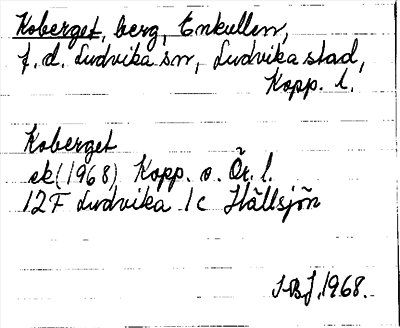 Koberget, berg, Enkullen,
f.d. Ludvika sn, Ludvika stad,
Kopp. l.
Koberget
ek (1968) Kopp. o. Ör. l.
12F Ludvika 1c Hällsjön
1968.